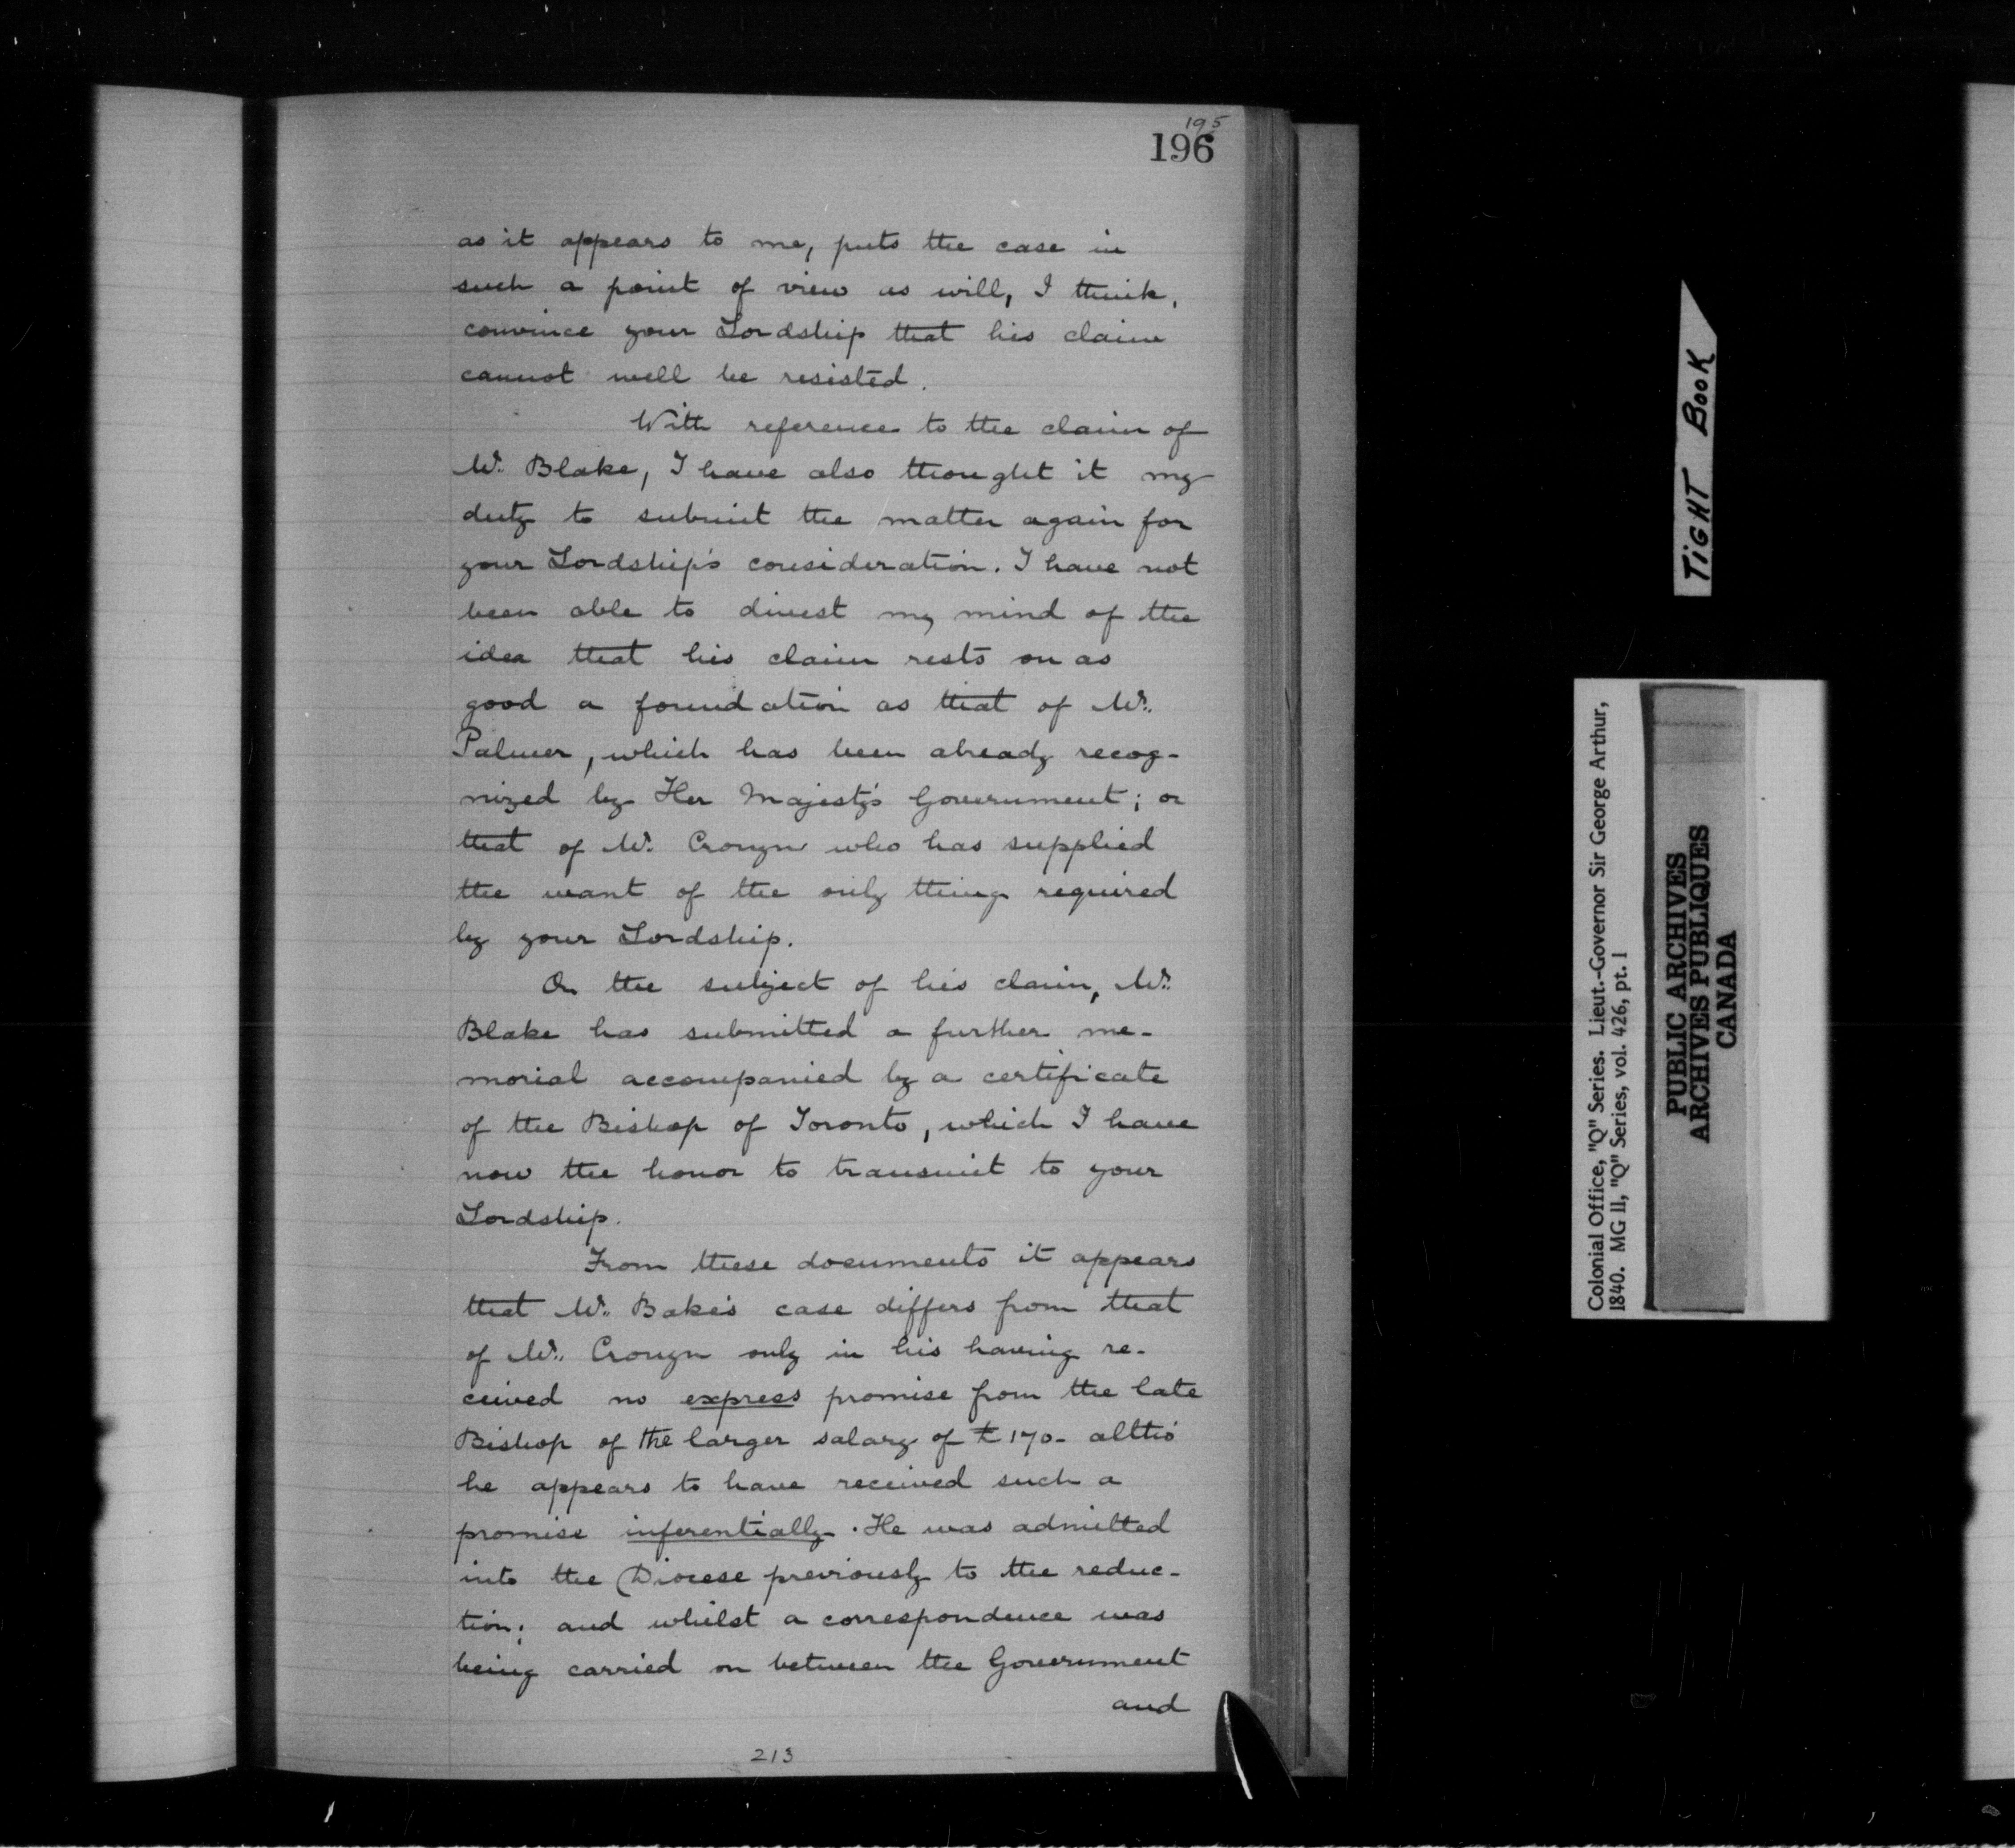 195
196
as it appears to me, puts the case in
such a point of view as will, I think,
convince your Lordship that his claim
cannot well be resisted.
With reference to the claim of
Mr. Blake, I have also thought it my
duty to submit the matter again for
your Lordship's consideration. I have not
been able to divest my mind of the
idea that his claim rests on as
good a foundation as that of Mr.
Palmer, which has been already recog-
nized by Her Majesty's Government; or
that of Mr. Cronyn who has supplied
the want of the only thing required
by your Lordship.
On the subject of his claim, Mr.
Blake has submitted a further me-
morial accompanied by a certificate
of the Bishop of Toronto, which I have
now the honor to transmit to your
Lordship.
From these documents it appears
that Mr. Bake's case differs from that
of Mr. Cronyn only in his having re-
ceived no express promise from the late
Bishop of the larger salary of £170- altho'
he appears to have received such a
promise inferentially. He was admitted
into the Diocese previously to the reduc-
tion; and whilst a correspondence was
being carried on between the Government
and
213
TIGHT BOOK
Colonial Office, "Q" Series. Lieut.-Governor Sir George Arthur,
1840. MG 11, "Q" Series, vol. 426, pt. 1
PUBLIC ARCHIVES
ARCHIVES PUBLIQUES
CANADA